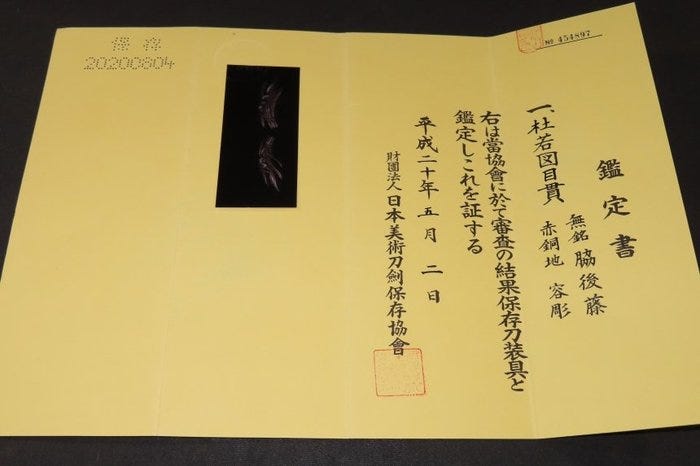 鑑定書
一、杜若図目貫
無銘 脇後藤
赤銅地 容彫
右は當協會に於て審査の結果保存刀装具と
鑑定しこれを証する
平成二十年五月二日
財團法人日本美術刀劍保存協會
№ 454897
保存
20200804